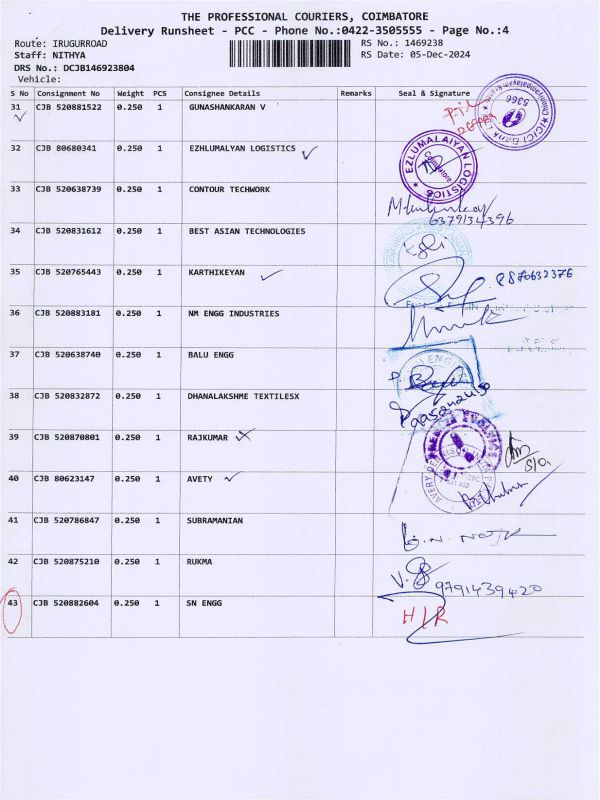 THE PROFESSIONAL COURIERS, COIMBATORE
Delivery Runsheet - PCC - Phone No.:0422-3505555 - Page No.:4
Route: IRUGURROAD RS No.: 1469238
Staff: NITHYA RS Date: 05-Dec-2024
DRS No.: DCJB146923804
Vehicle:
S No Consignment No Weight PCS Consignee Details Remarks Seal & Signature
31 CJB 520881522 0.250 1 GUNASHANKARAN V
ICICI Bank
5366
32 CJB 80680341 0.250 1 EZHLUMALYAN LOGISTICS
EZLUMALAIYAN LOGISTICS
Coimbatore
33 CJB 520638739 0.250 1 CONTOUR TECHWORK
6379134396
34 CJB 520831612 0.250 1 BEST ASIAN TECHNOLOGIES
35 CJB 520765443 0.250 1 KARTHIKEYAN
8870632376
36 CJB 520883181 0.250 1 NM ENGG INDUSTRIES
37 CJB 520638740 0.250 1 BALU ENGG
38 CJB 520832872 0.250 1 DHANALAKSHME TEXTILESX
39 CJB 520870801 0.250 1 RAJKUMAR
S/o
40 CJB 80623147 0.250 1 AVETY
41 CJB 520786847 0.250 1 SUBRAMANIAN
42 CJB 520875210 0.250 1 RUKMA
9791439420
43 CJB 520882604 0.250 1 SN ENGG
H/R